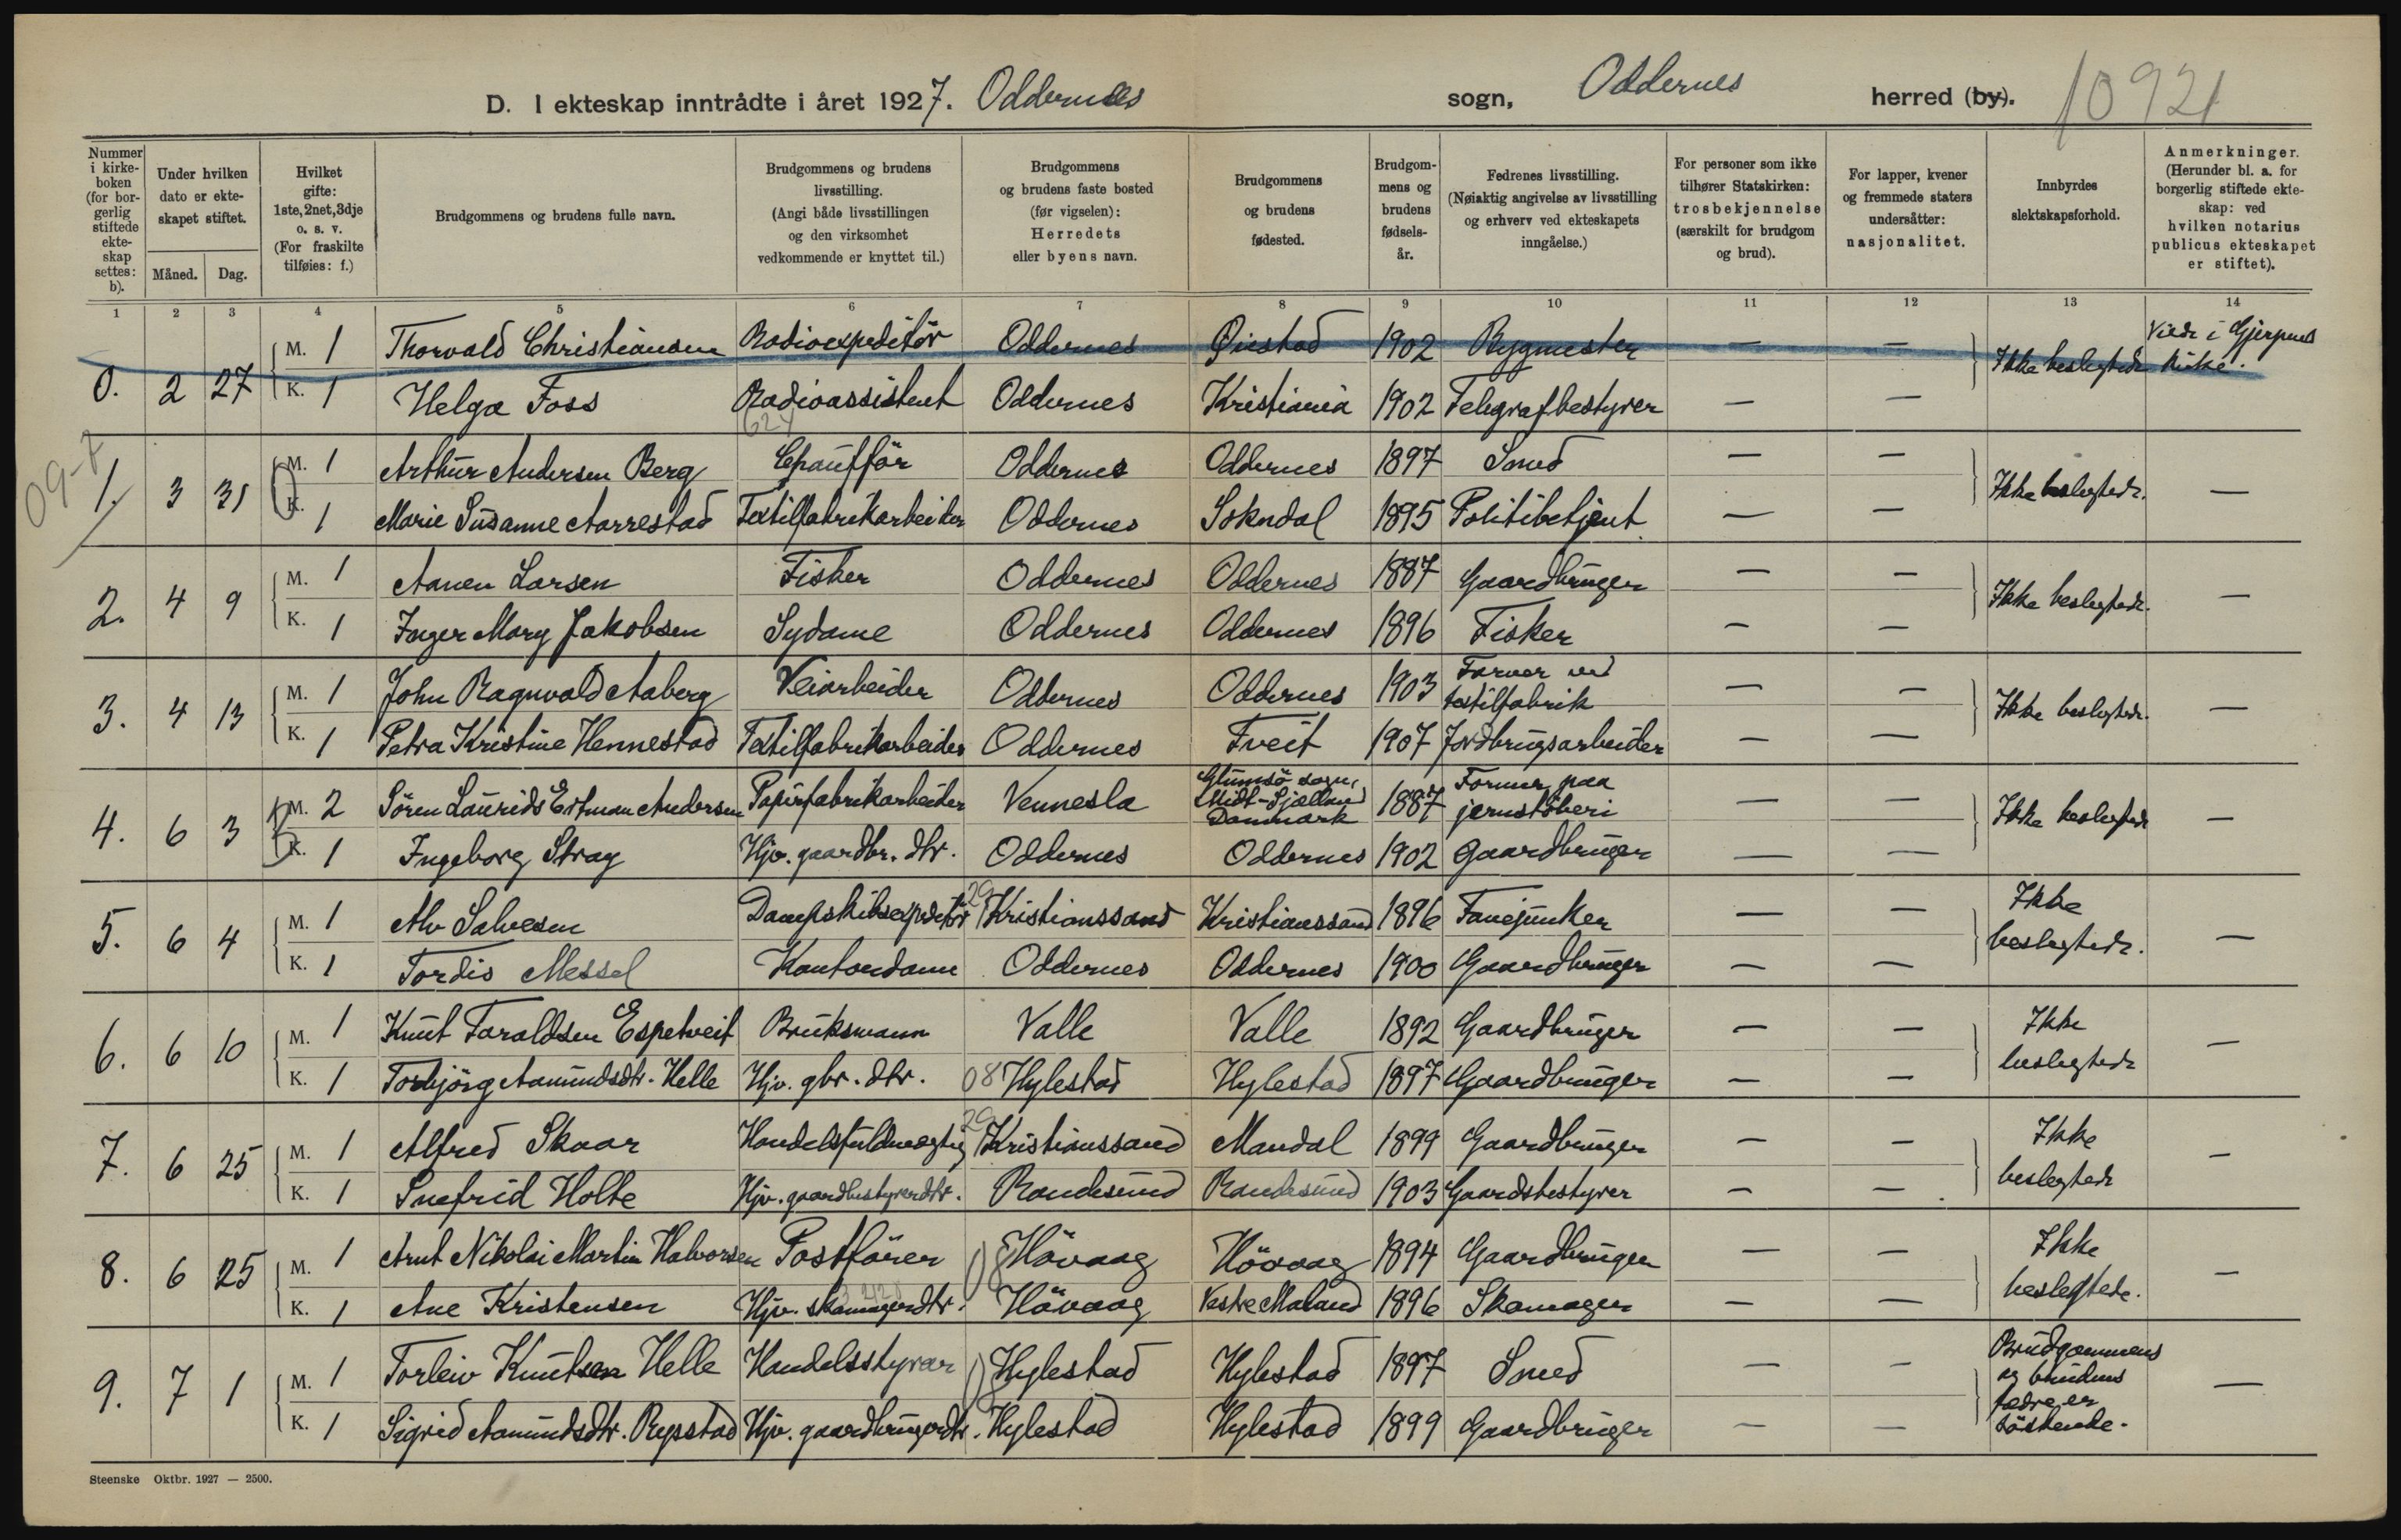 D. I ekteskap inntrådte i året 1927. Oddernes sogn, Oddernes herred (by). 10921
Nummer i kirkeboken (for borgerlig stiftede ekteskap settes: b).
Under hvilken dato er ekteskapet stiftet.
Måned. Dag.
Hvilket gifte: 1ste, 2net, 3dje o. s. v. (For fraskilte tilføies: f.)
Brudgommens og brudens fulle navn.
Brudgommens og brudens livsstilling. (Angi både livsstillingen og den virksomhet vedkommende er knyttet til.)
Brudgommens og brudens faste bosted (før vigselen): Herredets eller byens navn.
Brudgommens og brudens fødested.
Brudgommens og brudens fødselsår.
Fedrenes livsstilling. (Nøiaktig angivelse av livsstilling og erhverv ved ekteskapets inngåelse.)
For personer som ikke tilhører Statskirken: trosbekjennelse (særskilt for brudgom og brud).
For lapper, kvener og fremmede staters undersåtter: nasjonalitet.
Innbyrdes slektskapsforhold.
Anmerkninger. (Herunder bl. a. for borgerlig stiftede ekteskap: ved hvilken notarius publicus ekteskapet er stiftet).
1 2 3 4 5 6 7 8 9 10 11 12 13 14
0. 2 27 M. 1 Thorvald Christiansen Radioexpeditör Oddernes Øiestad 1902 Bygmester — — Ikke beslegtede Viede i Gjerpens kirke.
K. 1 Helga Foss Radioassistent Oddernes Kristiania 1902 Telegrafbestyrer — —
09-7
1. 3 31 M. 1 Arthur Andersen Berg Chaufför Oddernes Oddernes 1897 Smed — — Ikke beslegtede. —
K. 1 Marie Susanne Aarrestad Textilfabrikarbeider Oddernes Sokndal 1895 Politibetjent — —
2. 4 9 M. 1 Aanen Larsen Fisker Oddernes Oddernes 1887 Gaardbruger — — Ikke beslegtede. —
K. 1 Inger Mary Jakobsen Sydame Oddernes Oddernes 1896 Fisker — —
3. 4 13 M. 1 John Ragnvald Aaberg Veiarbeider Oddernes Oddernes 1903 Farver ved textilfabrik — — Ikke beslegtede. —
K. 1 Petra Kristine Hennestad Textilfabrikarbeider Oddernes Tveit 1907 Jordbrugsarbeider — —
4. 6 3 M. 2 Sören Laurids Estman Andersen Papirfabrikarbeider Vennesla Glumsö sogn, Midt-Sjælland Danmark 1887 Former paa jernstöberi — — Ikke beslegtede —
K. 1 Ingeborg Stray Hjv. gaardbr. dtr. Oddernes Oddernes 1902 Gaardbruger — —
5. 6 4 M. 1 Alv Salvesen Dampskibsexpeditör 29 Kristianssand Kristianssand 1896 Fanejunker — — Ikke beslegtede. —
K. 1 Tordis Messel Kontordame Oddernes Oddernes 1900 Gaardbruger — —
6. 6 10 M. 1 Knut Taraldsen Espetveit Bruksmann Valle Valle 1892 Gaardbruger — — Ikke beslegtede —
K. 1 Torbjörg Aamundsdtr. Helle Hjv. gbr. dtr. 08 Hylestad Hylestad 1897 Gaardbruger — —
7. 6 25 M. 1 Alfred Skaar Handelsfuldmægtig 29 Kristianssand Mandal 1899 Gaardbruger — — Ikke beslegtede —
K. 1 Snefrid Holte Hjv. gaardbestyrerdtr. Randesund Randesund 1903 Gaardsbestyrer — —
8. 6 25 M. 1 Arnt Nikolai Martin Halvorsen Postförer Hövaag Hövaag 1894 Gaardbruger — — Ikke beslegtede. —
K. 1 Ane Kristensen Hjv. skomagerdtr. Hövaag Vestre Moland 1896 Skomager — —
9. 7 1 M. 1 Torleiv Knutsen Helle Handelsstyrar Hylestad Hylestad 1897 Smed — — Brudgommens og brudens fedre er söskende. —
K. 1 Sigrid Aamundsdtr. Rysstad Hjv. gaardbrugerdtr. Hylestad Hylestad 1899 Gaardbruger — —
Steenske Oktbr. 1927 — 2500.